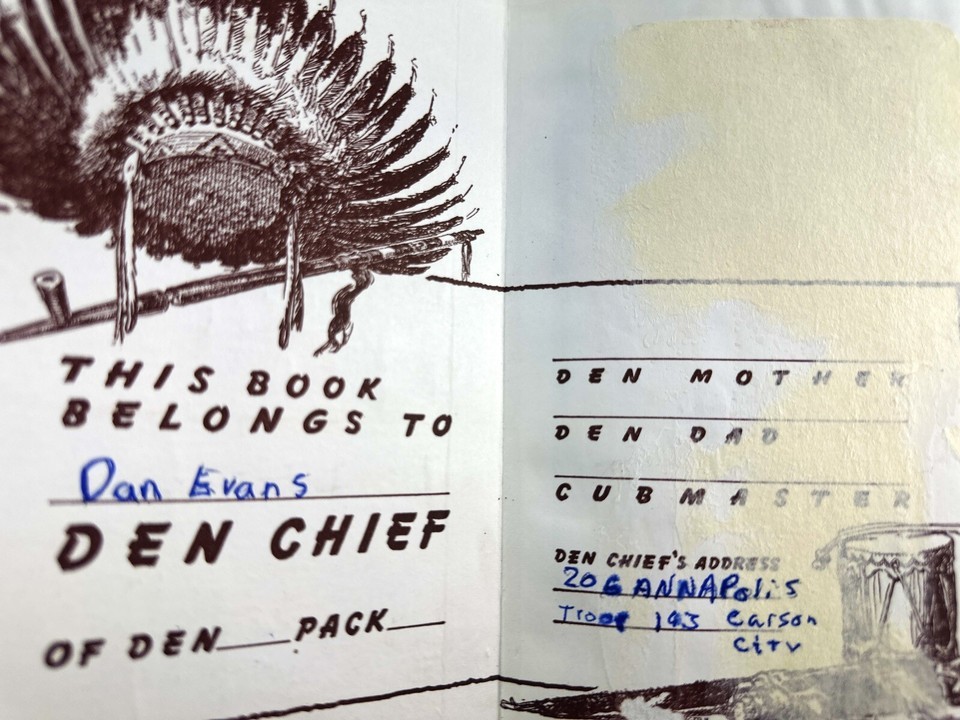 THIS BOOK
BELONGS TO
Dan Evans
DEN CHIEF
OF DEN PACK
DEN MOTHER
DEN DAD
CUBMASTER
DEN CHIEF'S ADDRESS
206 ANNAPolis
Troop 143 Carson
City